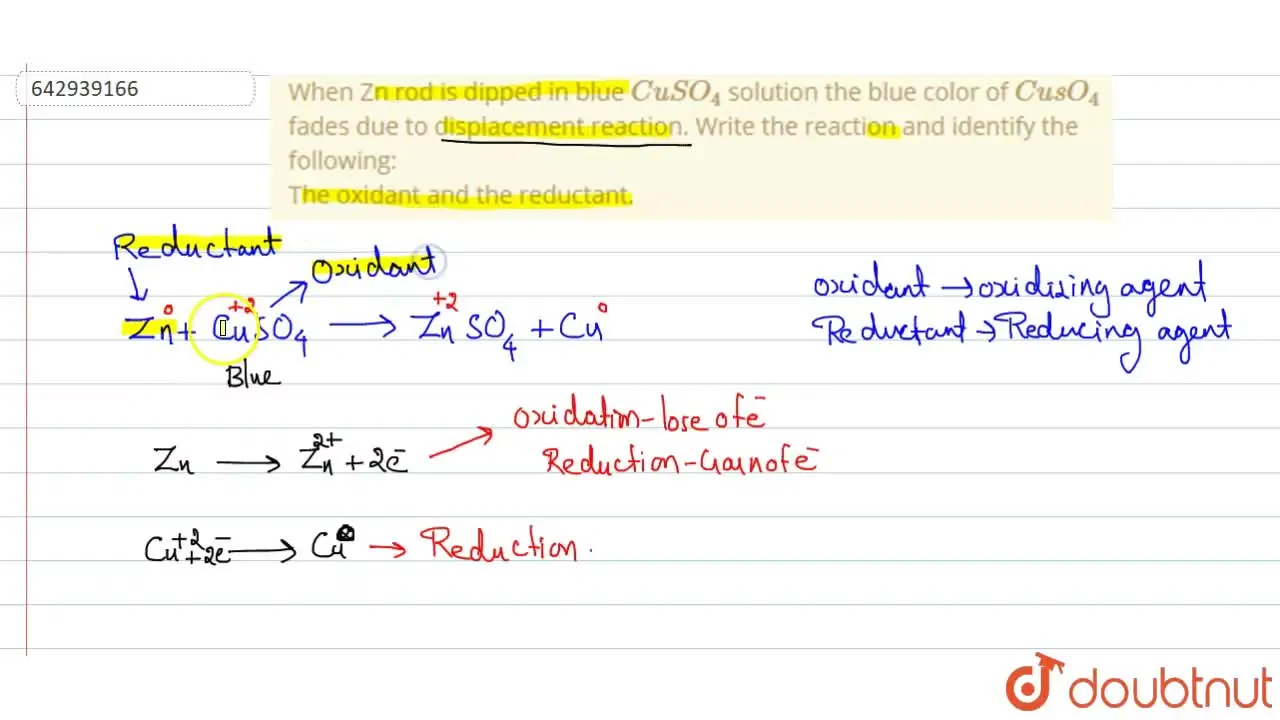 642939166
When Zn rod is dipped in blue CuSO₄ solution the blue color of CusO₄
fades due to displacement reaction. Write the reaction and identify the
following:
The oxidant and the reductant.
Reductant
Oxidant
Zn⁰ + Cu⁺²SO₄ → Zn⁺²SO₄ + Cu⁰
Blue
oxidant → oxidising agent
Reductant → Reducing agent
Oxidation - lose of e⁻
Zn → Zn²⁺ + 2e⁻
Reduction - Gain of e⁻
Cu⁺² + 2e⁻ → Cu → Reduction.
doubtnut